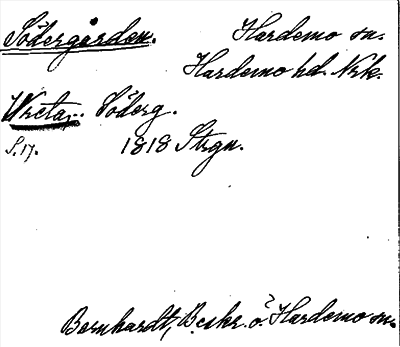 Södergården. Hardemo sn.
Hardemo hd. Nrk.
Wreta, Söderg.
S. 17. 1818 Strgn.
Bernhardt, Beskr. ö. Hardemo sn.